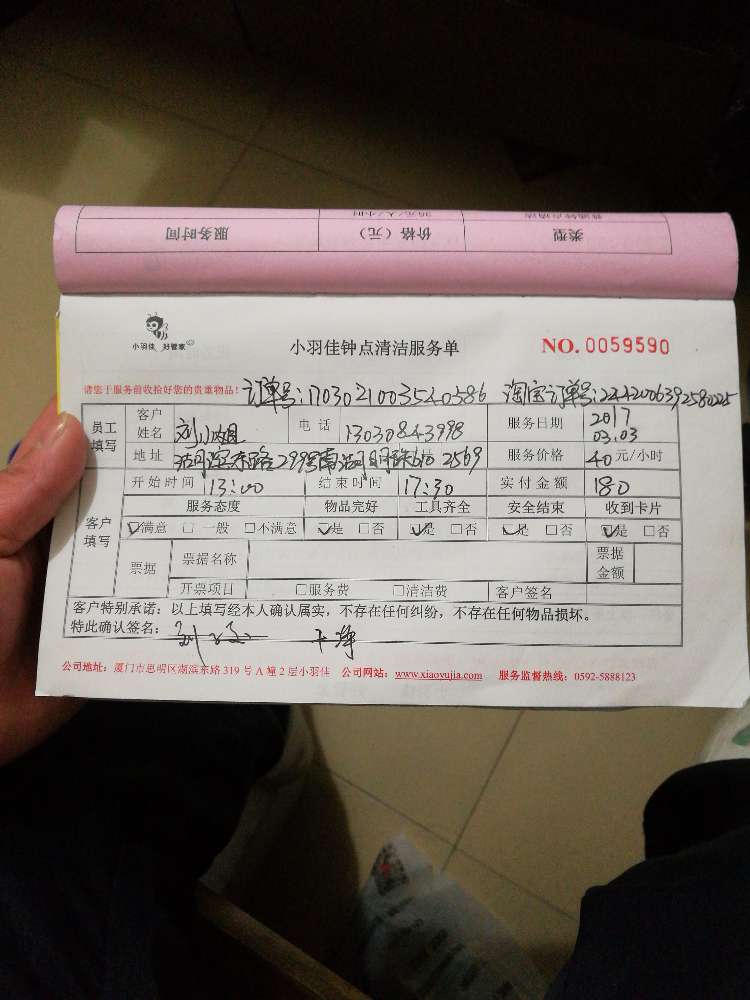 服务时间 价格（元） 类型
小羽佳 好管家
小羽佳钟点清洁服务单 NO. 0059590
请您于服务前收拾好您的贵重物品！ 订单号:170302100354058 6 淘宝订单号:2242006392580225
员工填写 客户姓名 刘小姐 电话 13030843998 服务日期 2017 03.03
地址 湖滨东路299号 2569 服务价格 40 元/小时
开始时间 13:00 结束时间 17:30 实付金额 180
客户填写 服务态度 物品完好 工具齐全 安全结束 收到卡片
☑满意 □一般 □不满意 ☑是 □否 ☑是 □否 ☑是 □否 ☑是 □否
票据 票据名称 票据金额
开票项目 □服务费 □清洁费 客户签名
客户特别承诺：以上填写经本人确认属实，不存在任何纠纷，不存在任何物品损坏。
特此确认签名： 干净
公司地址：厦门市思明区湖滨东路 319 号 A 幢 2 层小羽佳 公司网站：www.xiaoyujia.com 服务监督热线：0592-5888123